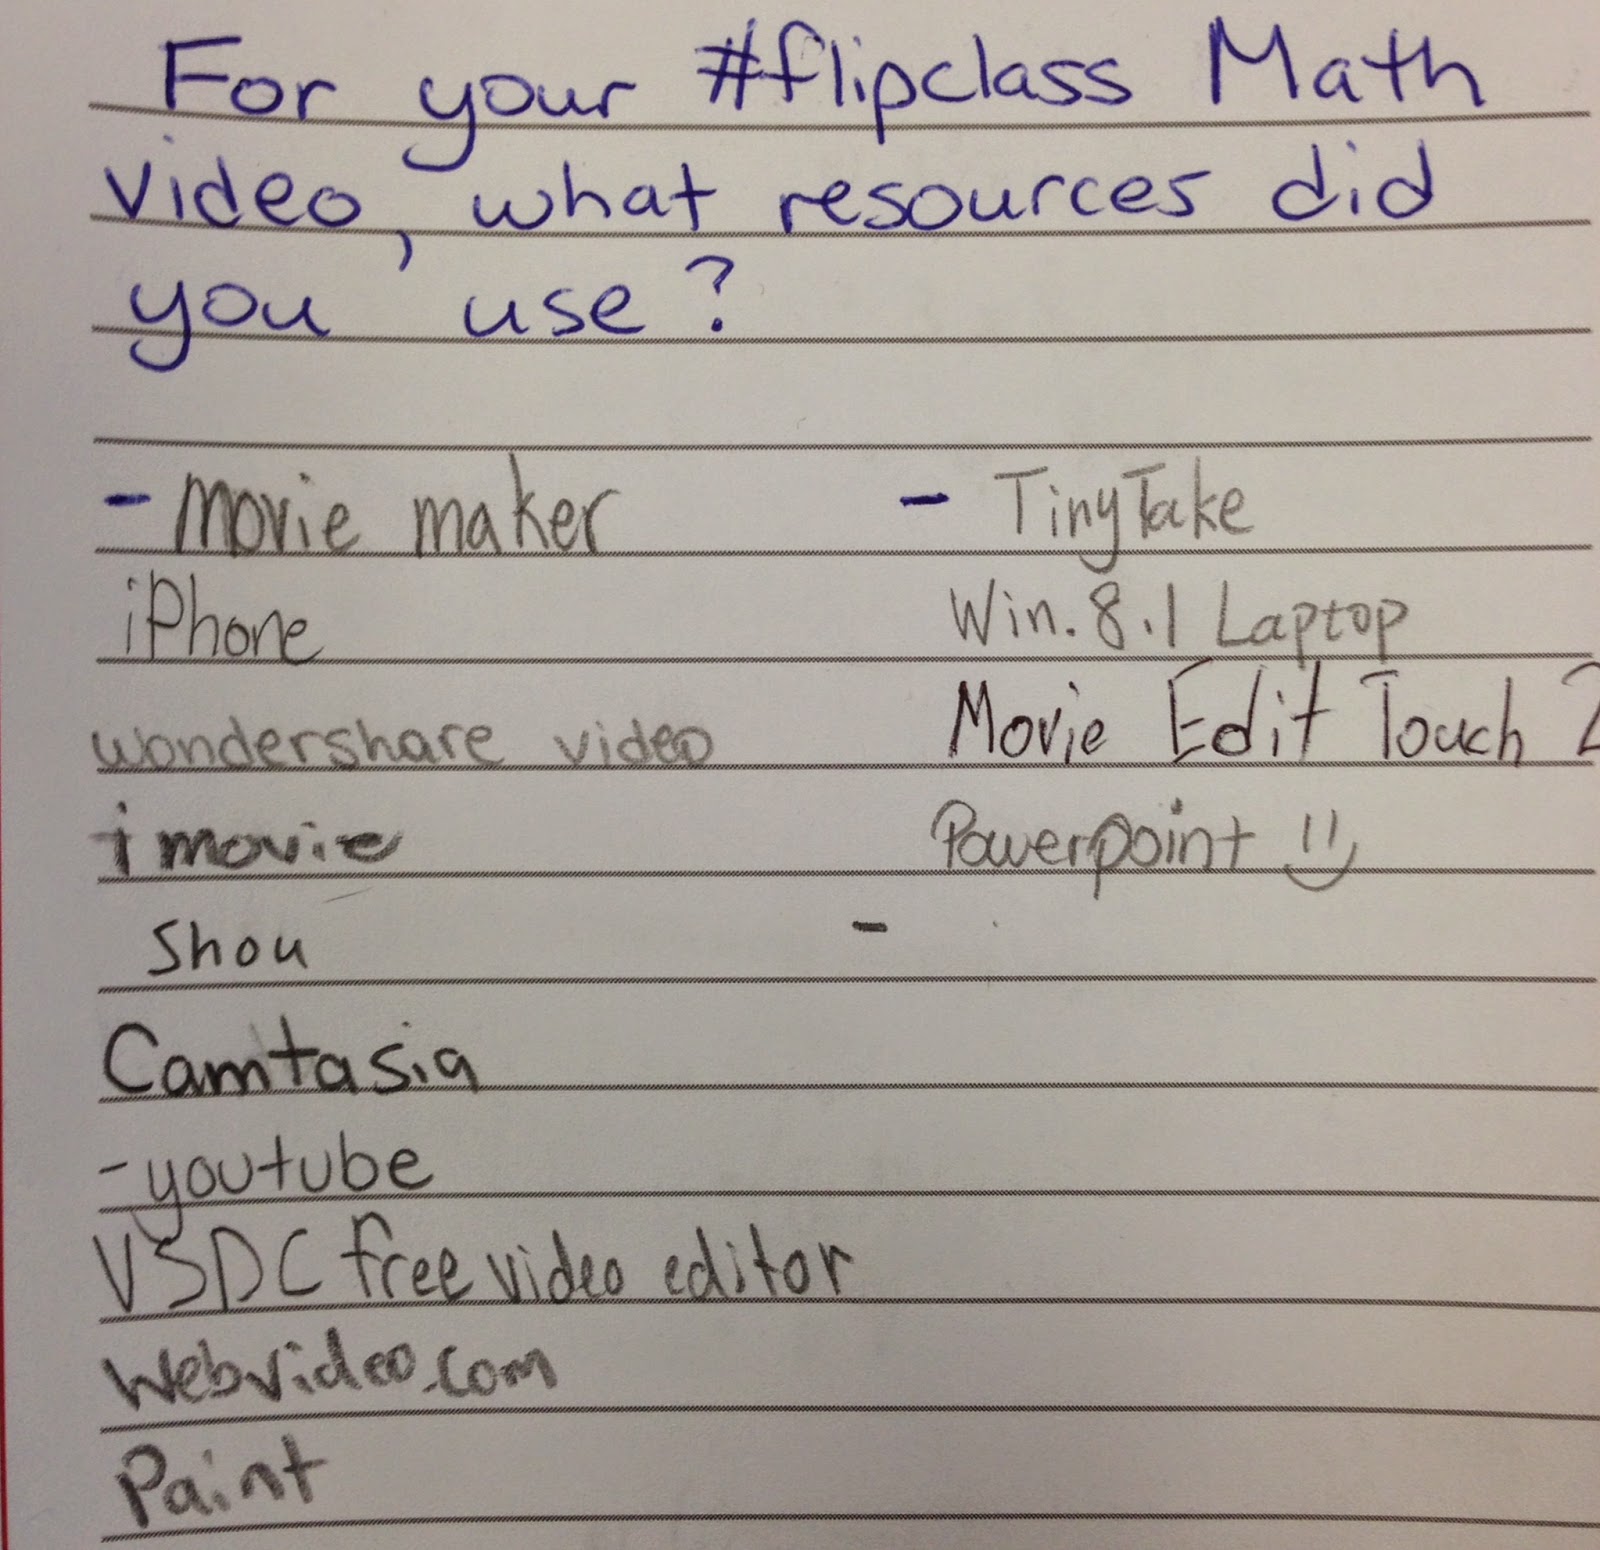 For your #flipclass Math
video, what resources did
you use?
- Movie maker
iPhone
wondershare video
imovie
Shou
Camtasia
-youtube
VSDC free video editor
Webvideo.com
Paint
- TinyTake
Win. 8.1 Laptop
Movie Edit Touch 2
Powerpoint :)
-